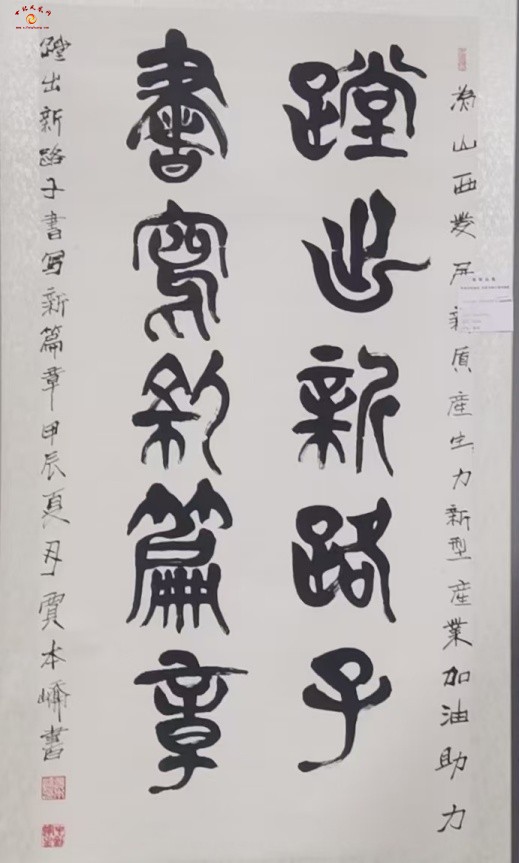 為山西發展新質産生力新型産業加油助力
蹚出新路子
書寫新篇章
蹚出新路子書写新篇章甲辰夏月賈本書